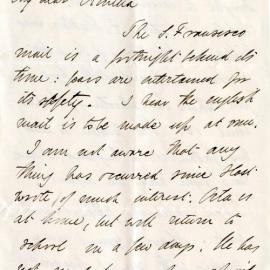 My dear Amelia
The S. Francisco
mail is a fortnight behind its
time: fears are entertained for
its safety. I hear the english
mail is to be made up at once.
I am not aware that any
thing has occurred since I last
wrote, of much interest. Orta is
at home, but will return to
school in a few days. He has